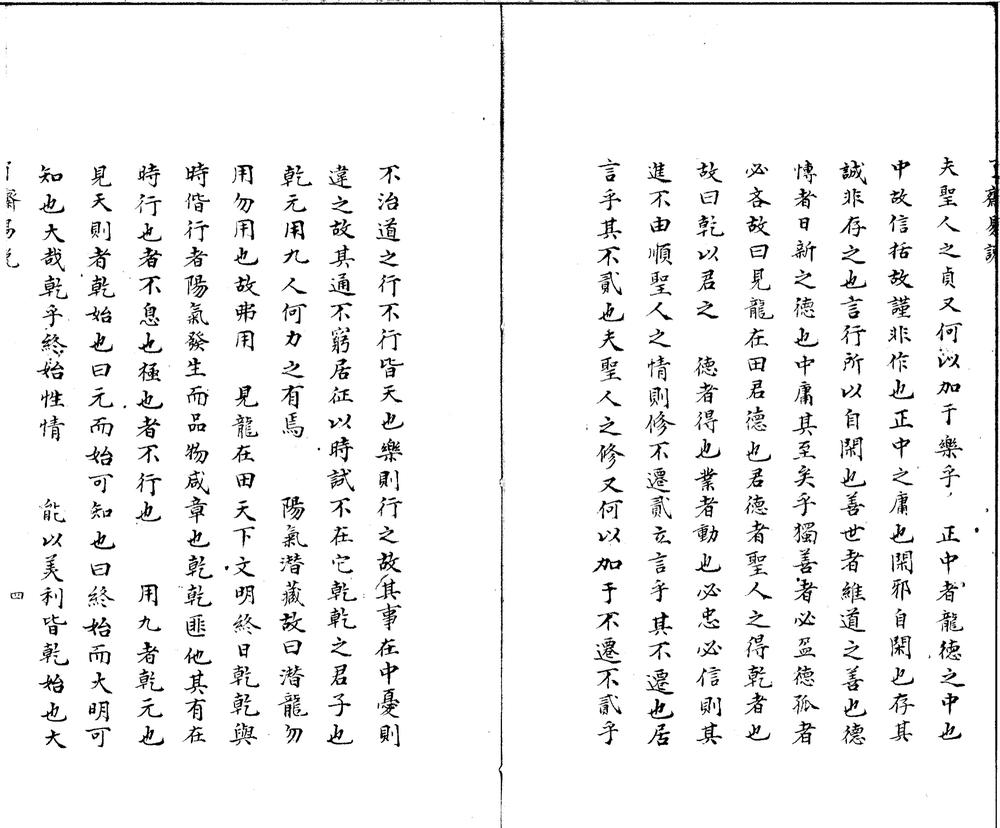 夫聖人之貞又何以加于樂乎　正中者龍徳之中也
中故信括故謹非作也正中之庸也閑邪自閑也存其
誠非存之也言行所以自閑也善世者維道之善也德
慱者日新之德也中庸其至矣乎獨善者必盈德孤者
必吝故曰見龍在田君德也君德者聖人之得乾者也
故曰乾以君之　德者得也業者動也必忠必信則其
進不由順聖人之情則修不遷貳立言乎其不遷也居
言乎其不貳也夫聖人之修又何以加于不遷不貳乎
不治道之行不行皆天也樂則行之故其事在中憂則
違之故其通不窮居征以時試不在它乾乾之君子也
乾元用九人何力之有焉　陽氣潛藏故曰潛龍勿
用勿用也故弗用　見龍在田天下文明終日乾乾與
時偕行者陽氣發生而品物咸章也乾乾匪他其有在
時行也者不息也極也者不行也　用九者乾元也
見天則者乾始也曰元而始可知也曰終始而大明可
知也大哉乾乎終始性情　能以美利皆乾始也大
四